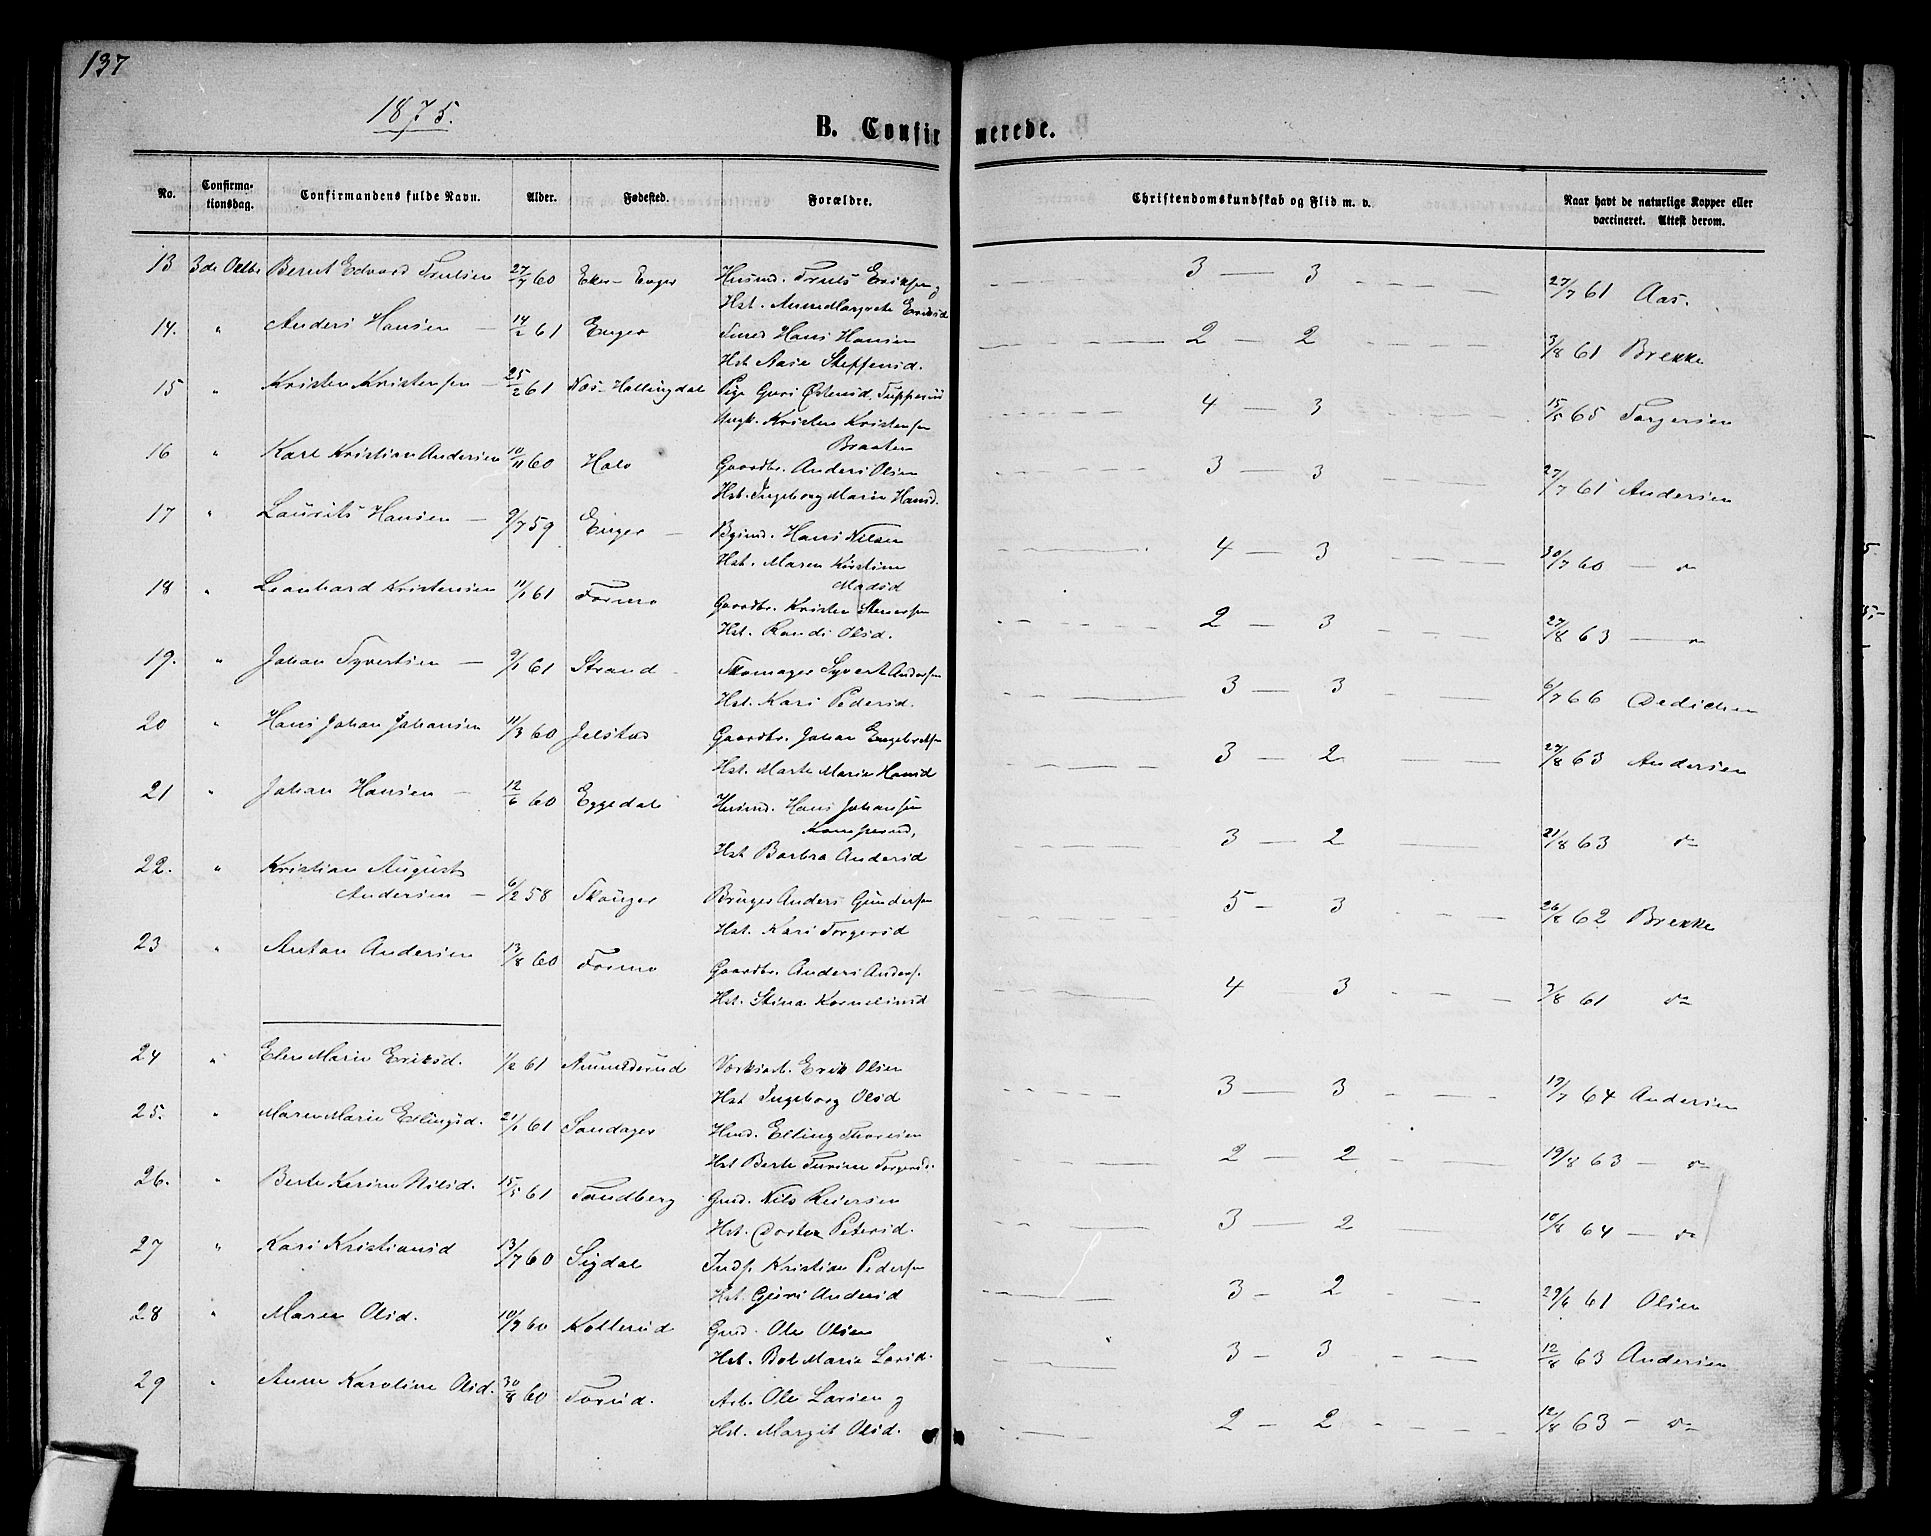 137
1875.
B. Confirmerede.
No.
Confirma-
tionsdag.
Confirmandens fulde Navn.
Alder.
Fødested.
Forældre.
Christendomskundskab og Flid m. v.
Naar havt de naturlige Kopper eller
vaccineret. Attest derom.
13 3de Octbr Bernt Edvard Trulsen 27/7 60 Eker - Enger Husmd. Truls Eriksen og 3 — 3 27/7 61 Aas.
Hst. Anne Margrete Eriksd
14. " Anders Hansen — 14/2 61 Enger Hans Hansen 2 — 2 3/8 61 Brekke
Hst Aase Steffensd.
15 " Kristen Kristensen — 25/2 61 Næs - Hallingdal Pige Guri Østensd. 4 — 3 15/5 65 Torgersen
Ungk. Kristen Kristensen
Braaten
16 " Karl Kristian Andersen 10/11 60 Hovo Gaardbr. Anders Olsen 3 — 3 27/7 61 Andersen
Hst. Ingeborg Marie Hansd.
17 " Laurits Hansen — 9/7 59 Enger — Bgsmd. Hans Nilsen 4 — 3 30/7 60 — do
Hst. Maren Kirstine
Madsd
18 " Leonhard Kristensen 11/1 61 Formo Gaardbr. Kristen Steensen 2 — 3 27/8 63 — do
Hst. Randi Olsd.
19. " Johan Syvertsen — 9/1 61 Strand Skomager Syvert Andersen 3 — 3 6/7 66 Dedichen
Hst. Kari Pedersd.
20 " Hans Johan Johansen 11/3 60 Jelstad Gaardbr. Johan Engebretsen 3 — 2 27/8 63 Andersen
Hst. Marte Marie Hansd
21 " Johan Hansen — 12/6 60 Eggedal Husmd. Hans Johansen 3 — 2 21/8 63 do
Hst Barbra Andersd
22. " Kristian August
Andersen — 6/2 58 Skouger Bruger Anders Gundersen 5 - 3 26/8 62 Brekke
Hst. Kari Torgersd
23 " Anton Andersen 13/8 60 Formo Gaardbr. Anders Anders. 4 — 3 3/8 61 do
Hst. Stina Kornelinsd
24 " Elen Marie Eriksd. 1/2 61 Amundsrud Værksarb. Erik Olsen 3 — 3 19/7 64 Andersen
Hst Ingeborg Olsd
25. " Maren Marie Ellingsd. 21/1 61 Sandager Hmd. Elling Thoresen 2 — 2 19/8 63 — do
Hst Berte Turine Torgersd.
26. " Berte Karine Nilsd. 15/5 61 Sandberg Gmd. Nils Reiersen 3 — 2 10/8 64 — do
Hst. Dorte Petersd.
27 " Kari Kristiansd 13/7 60 Sigdal Inds. Kristian Pedersen 3 - 2 29/6 61 Olsen
Hst. Guri Andersd
28 " Maren Olsd. 10/9 60 Kollerud Gmd. Ole Olsen 3 - 3 12/8 63 Andersen
Hst. Bol Marie Larsd.
29 " Anne Karoline Olsd. 30/8 60 Torud. Arb. Ole Larsen og 2 - 2 12/8 63 — do
Hst. Margit Olsd.